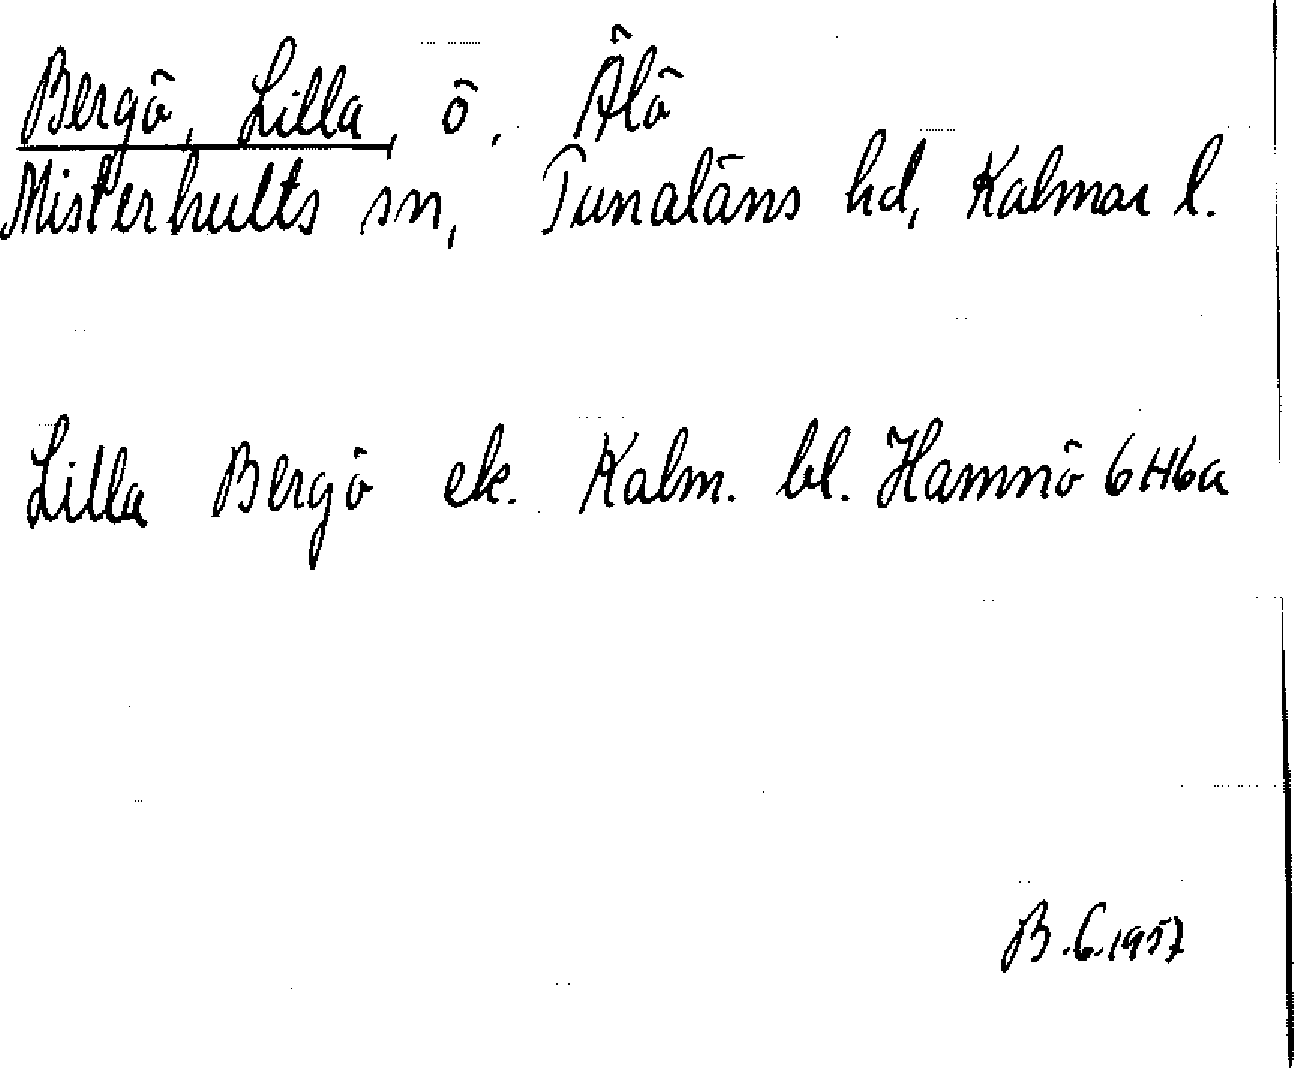 Bergö, Lilla, ö, Älö
Misterhults sn, Tunaläns hd, Kalmar l.
Lilla Bergö ek. Kalm. bl. Hamnö 6H6a
B.G.1957